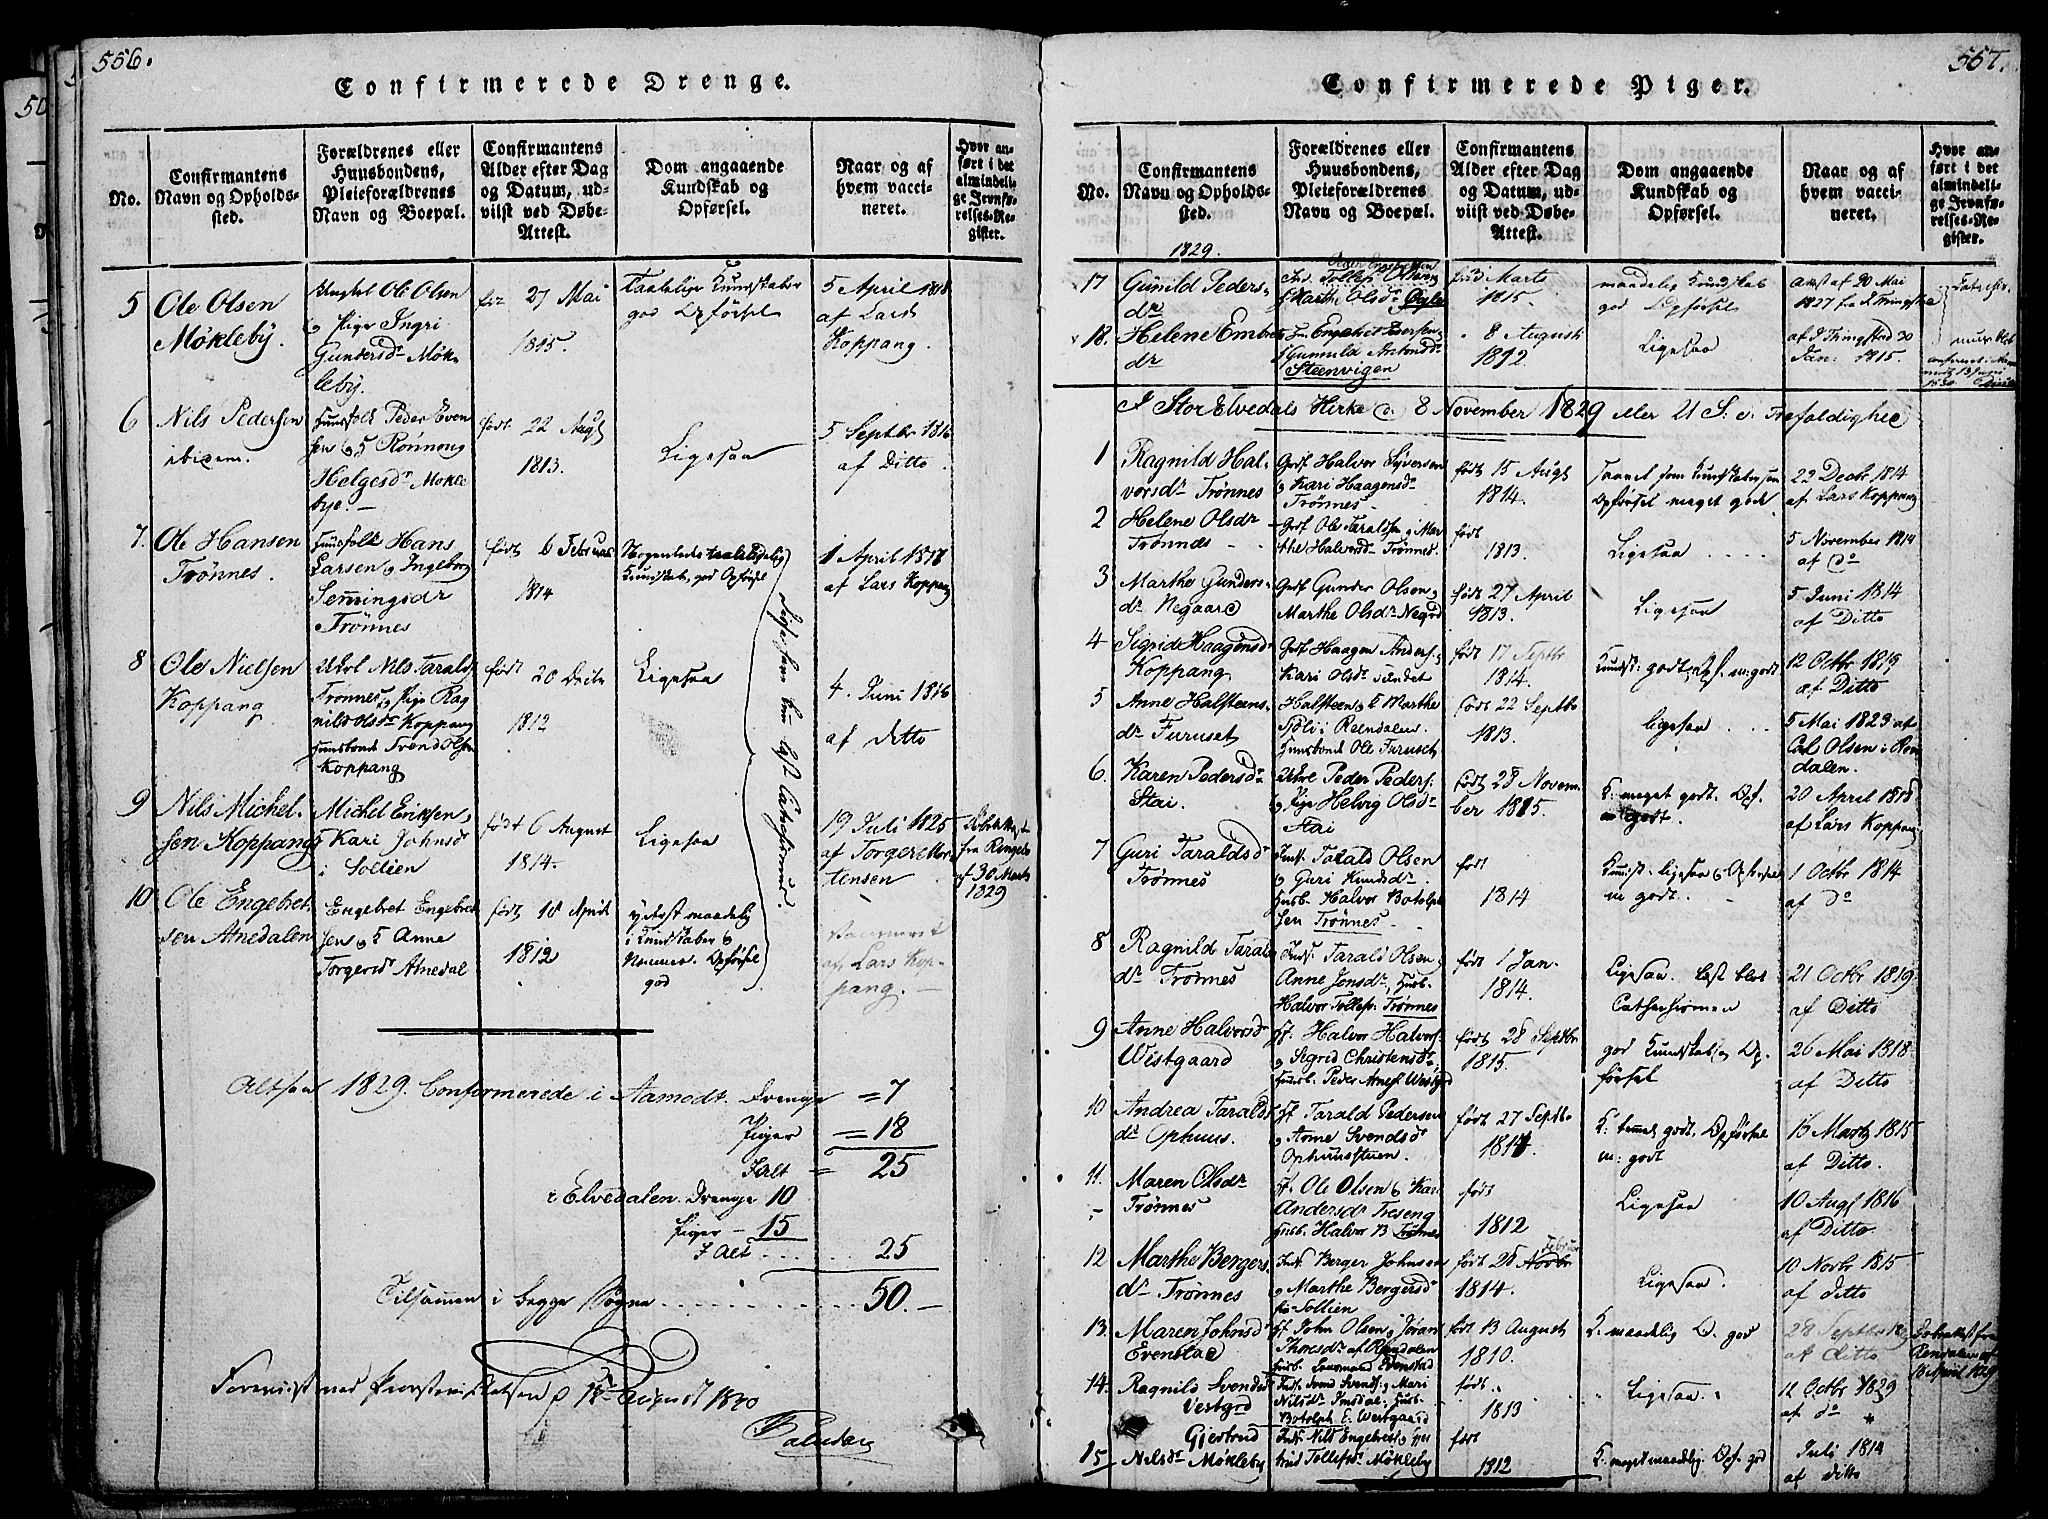 556.
Confirmerede Drenge.
No.
Confirmantens
Navn og Opholds-
sted.
Forældrenes eller
Huusbondens,
Pleieforældrenes
Navn og Boepæl.
Confirmantens
Alder efter Dag
og Datum, ud-
viist ved Døbe-
Attest.
Dom angaaende
Kundskab og
Opførsel.
Naar og af
hvem vacci-
neret.
Hvor an-
ført i det
almindeli-
ge Jevnfø-
relses-Re-
gister.
5
Ole Olsen
Møkleby.
Ungkl Ole Olsen
og Pige Ingri
Gundersdr Møk-
leby.
født 27 Mai
1815.
Taalelige Kundskaber
god Opførsel
5 April 1818
af Lars
Koppang.
6
Nils Pedersen
ibidem.
Huusfolk Peder Even
sen og Rønnong
Helgesdr Møkle
bye. -
født 22 Augt
1813.
Ligesaa
5 Septbr 1816
af Ditto.
7.
Ole Hansen
Trønnes.
Huusfolk Hans
Larsen og Ingeborg
Semingsdr
Trønnes
født 6 Februar
1814
Nogenledes taalelig
Kundskab, god Opførsel
1 April 1817
af Lars Koppang
8
Ole Nielsen
Koppang
Nils Tarald
Trønnes, og Pige Rag
nild Olsdr Koppang
Huusbond Trend Olsen
Koppang
født 20 Decbr
1812
Ligesaa
4. Juni 1816
af ditto
9
Nils Michel-
sen Koppang
Michel Eriksen
Kari Johnsdr
i Sollien
født 6 August
1814.
Ligesaa
19 Juli 1825
af Torger Mor
tensen
fra Ringeb
af 30 Marts
1829
10
Ole Engebret
sen Atnedalen
Engebret Engebret
sen og Anne
Torgersdr Atnedal
født 18 April
1812
yderst maadelig
i Kundskaber og
Nemme. Opførsel
god
Vaccineret
af Lars Kop-
pang. -
Altsaa 1829 Confirmerede i Aamodt. Drenge = 7
Piger = 18
Ialt = 25
i Elvedalen. Drenge 10
Piger - 15
I Alt .... 25
Tilsammen i begge Sogne .......... 50. -
August 1830
557.
Confirmerede Piger.
No.
Confirmantens
Navn og Opholds-
sted.
Forældrenes eller
Huusbondens,
Pleieforældrenes
Navn og Boepæl.
Confirmantens
Alder efter Dag
og Datum, ud-
viist ved Døbe-
Attest.
Dom angaaende
Kundskab og
Opførsel.
Naar og af
hvem vacci-
neret.
Hvor an-
ført i det
almindeli-
ge Jevnfø-
relses-Re-
gister.
1829.
17
Gunild Peders-
dr
Marthe Olsdr
Marts
1815.
maadelig Kundskab
god Opførsel
Attest af 20 Mai
1827
18.
Helene Embre
dr
Gunnild
Steenvigen
8 August
1812
Ligesaa
af Tringstad 30
Jan: 1815.
I Stor Elvedals Kirke d. 8 November 1829 eller 21 S. e. Trefoldighed
1
Ragnild Hal-
vorsdr Trønnes
Gmf Halvor Syversen
og Kari Haagensdr
Trønnes.
født 15 Augt
1814.
Saavel som Kundskaber som
Opførsel meget gode.
22 Decbr 1814
af Lars Koppang
2
Helene Olsdr
Trønnes
Gmf Ole Taraldsen og Mar
the Halvorsdr Trønnes.
født
1813.
Ligesaa ....
5 November 1814
af Do
3
Marthe Gunders-
dr Negaard
Gmf Gunder Olsen og
Marthe Olsdr Negrd
født 27 April
1813.
Ligesaa
5 Juni 1814
af Ditto
4
Sigrid Haagensdr
Koppang
Gmf Haagen Anders:
Kari Olsdr istedet
født 17 Septbr
1814.
Kundsk: godt, Opf. m: godt
12 Octbr 1819
af Ditto
5
Anne Halsteens
dr Furuset
Halsteen og Marthe
Sjøli i Rendalen
Huusbond Ole Furuseth
født 22 Septbr
1813.
ligesaa ...
5 Mai 1823 af
Col Olsen i Ren
dalen.
6.
Karen Pedersdr
Stai.
Peder Peders:
og Pige Helvig Olsdr
Stai
født 28 Novem-
ber 1815.
K: meget godt. Opf.
m godt.
20 April 1818
af Lars Koppang
7
Guri Taraldsdr
Trønnes
Inds. Tarald Olsen
og Guri Knudsdr
Husb. Halvor Botolph
sen Trønnes.
født
1814
Kundsk: ligesaa og Opførsel
m godt.
1 Octbr 1814
af Do
8
Ragnild Taralds
dr Trønnes
Inds. Tarald Olsen
Anne Jonsdr, Husb.
Halvor Tollefs. Trønnes
født 1 Jan.
1814.
Ligesaa. læst blot
Cathechismen
21 Octbr 1819
af Ditto
9
Anne Halvorsdr
Westgaard
Hf. Halvor Halvors
og Segrid Christensdr
Huusb. Peder Arnes. Westgrd
født 28 Septbr
1815.
god Kundskab og Op-
førsel
26 Mai 1818
af Ditto
10
Andrea Taralds
dr Ophuus.
Hf Tarald Pedersen
og Anne Svendsdr
Ophuusstuen.
født 27 Septbr
1814.
K: temml godt. Opførsel
m: godt
16 Marts 1815
af Ditto.
11.
Maren Olsdr
Trønnes
Hf. Ole Olsen og Kari
Andersdr Treseng
Husb. Halvor B Trønnes
født
1812
Ligesaa
10 Augt 1816
af Ditto.
12
Marthe Bergers-
dr Trønnes
Inds. Berger Johnsen
og Marthe Bergersdr
fra Sollien
født 28 Novbr
Februar
1814.
Ligesaa.
10 Novbr 1815
af ditto
13.
Maren Johnsdr
Evenstad
Hf. John Olsen og Jøran
Thoresdr af Rendalen
Husb. Lensmand Evenstad
født 13 August
1810.
K. maadelig O. god
28 Septbr
af ditto
Døbeattest fra
Rendalen af
16 April 1829
14.
Ragnild Svendsdr
Vestgrd
Inds. Svend Svends: og Mari
Nilsdr Imsdal. Husb.
Botolph E. Westgaard
født
1813
Ligesaa.
12 Octbr 1829
af do
15
Gjertrud
Nilsdr Møkleby
Inds. Nils Engebrets. og Gjer
trud Tollefsdr Møkleby
født
1812
K: meget maadelig. Opf. god
Juli 1814
af ditto